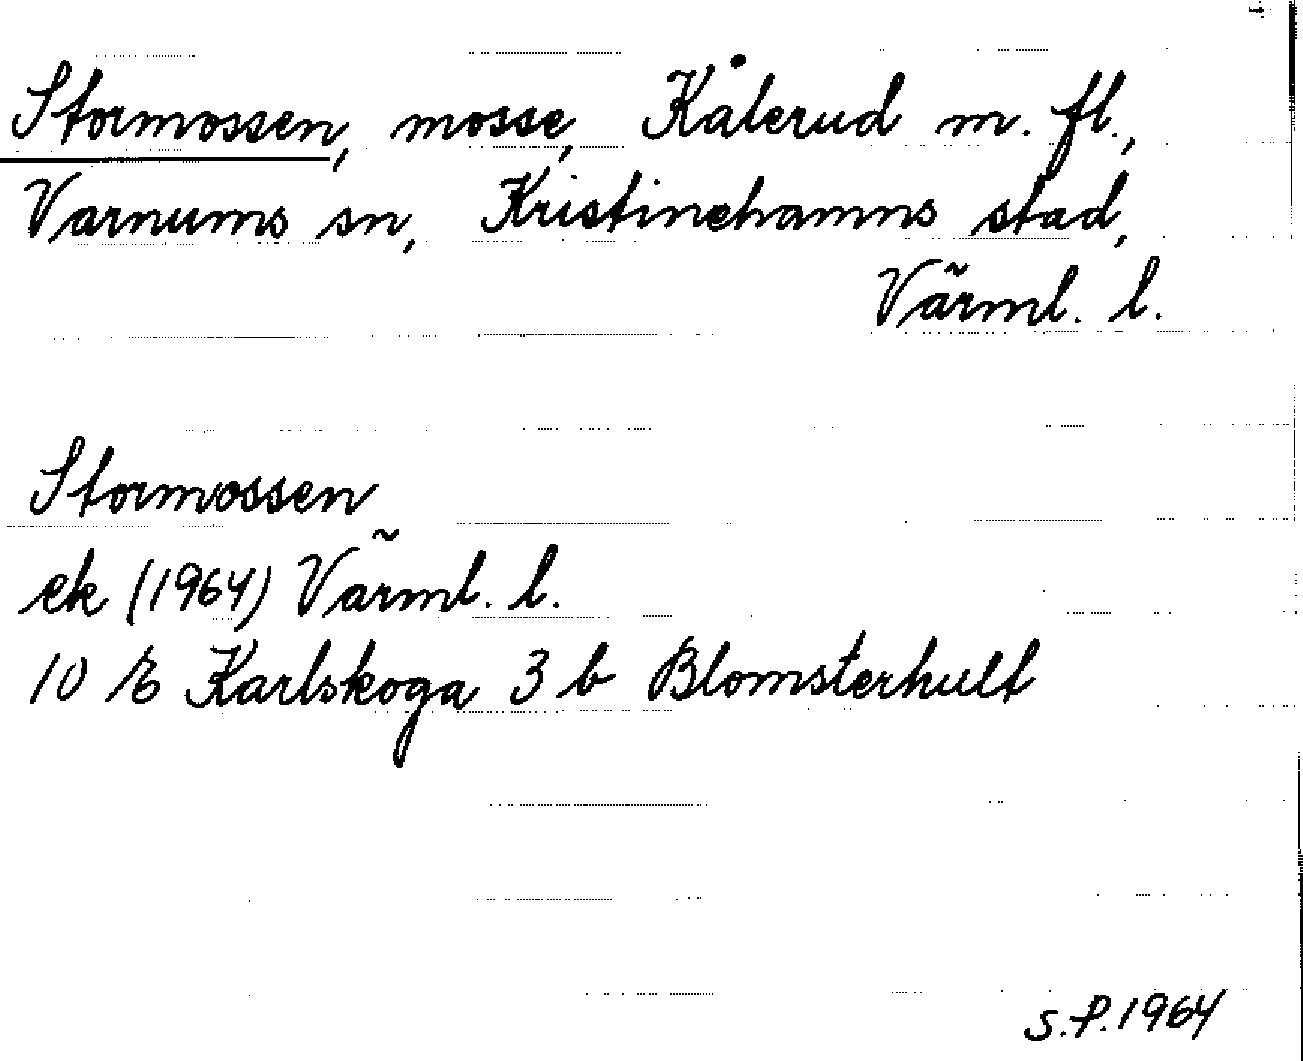 Stormossen, mosse, Kålerud m. fl.,
Varnums sn, Kristinehamns stad,
Värml. l.
Stormossen
ek (1964) Värml. l.
10 E Karlskoga 3 b Blomsterhult
S.P. 1964